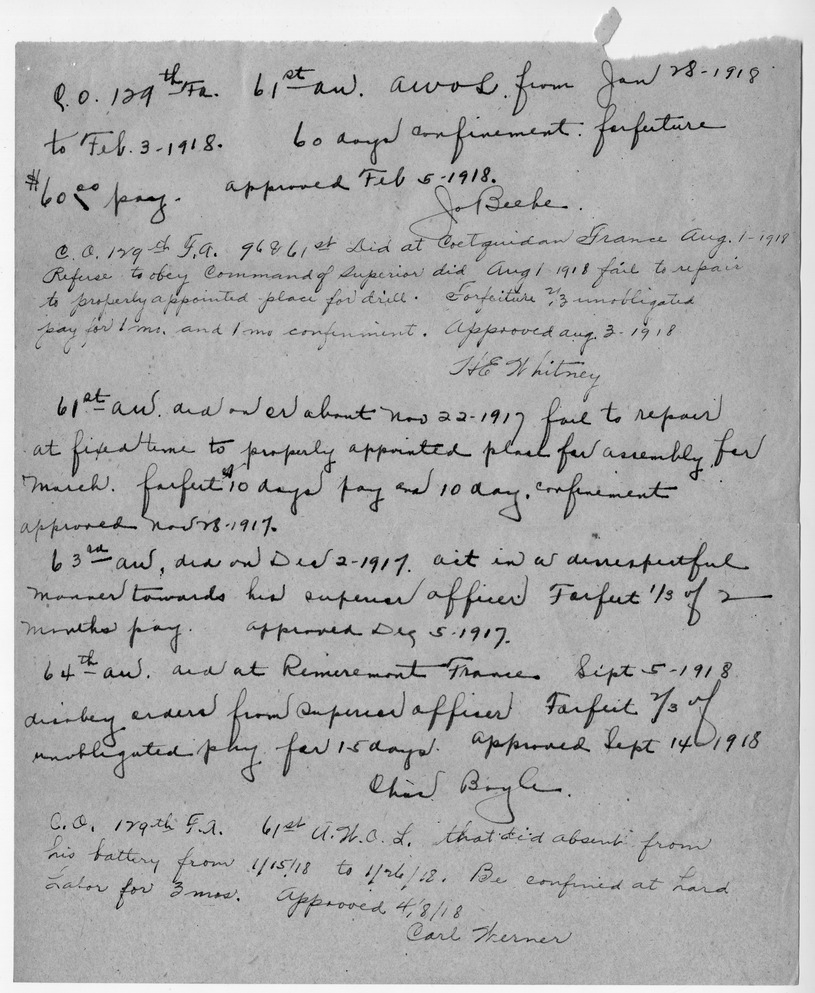 C.O. 129th Fa. 61st aw. AWOL from Jan 28-1918
to Feb. 3-1918. 60 days confinement. forfeiture
$60.00 pay. approved Feb 5-1918.
Jo Beebe.
C.O. 129th F.A. 96 & 61st Did at Coetquidan France Aug. 1-1918
Refuse to obey Command of Superior did Aug 1 1918 fail to repair
to properly appointed place for drill. Forfeiture 2/3 unobligated
pay for 1 mo. and 1 mo confinment. Approved aug. 3-1918
HE Whitney
61st aw. did on or about Nov 22-1917 fail to repair
at fixed time to properly appointed place for assembly for
march. forfeit 10 days pay and 10 day. confinement
approved Nov 28-1917.
63rd aw, did on Dec 2-1917. act in a disrespectful
manner towards his superior officer Forfeit 1/3 of 2
months pay. approved Dec 5-1917.
64th aw. did at Remeremont France Sept 5-1918
disobey orders from superior officer Forfeit 2/3 of
unobligated pay for 15 days. approved Sept 14-1918
Chas Boyle.
C.O. 129th F.A. 61st A.W.O.L. that did absent from
his battery from 1/15/18 to 1/26/18. Be confined at hard
Labor for 3 mos. Approved 4/8/18
Carl Werner